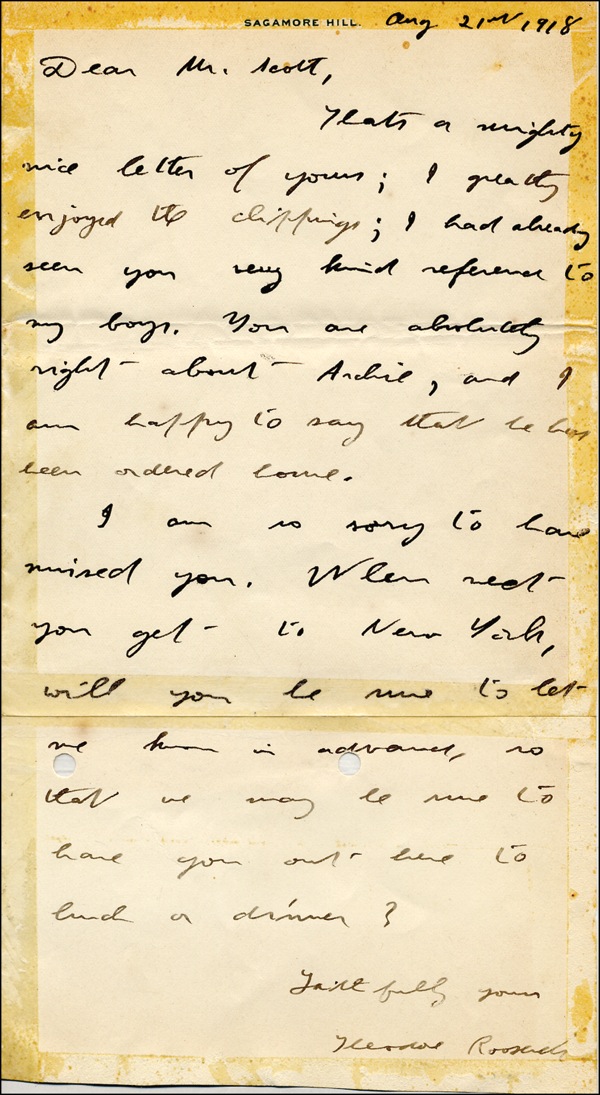 SAGAMORE HILL. Aug 21st 1918
Dear Mr. Scott,
Thats a mighty
nice letter of yours; I greatly
enjoyed the clippings; I had already
seen your very kind reference to
my boys. You are absolutely
right about Archie, and I
am happy to say that he has
been ordered home.
I am so sorry to have
missed you. When next
you get to New York,
will you be sure to let
me know in advance, so
that we may be sure to
have you out here to
lunch or dinner?
Faithfully yours
Theodore Roosevelt